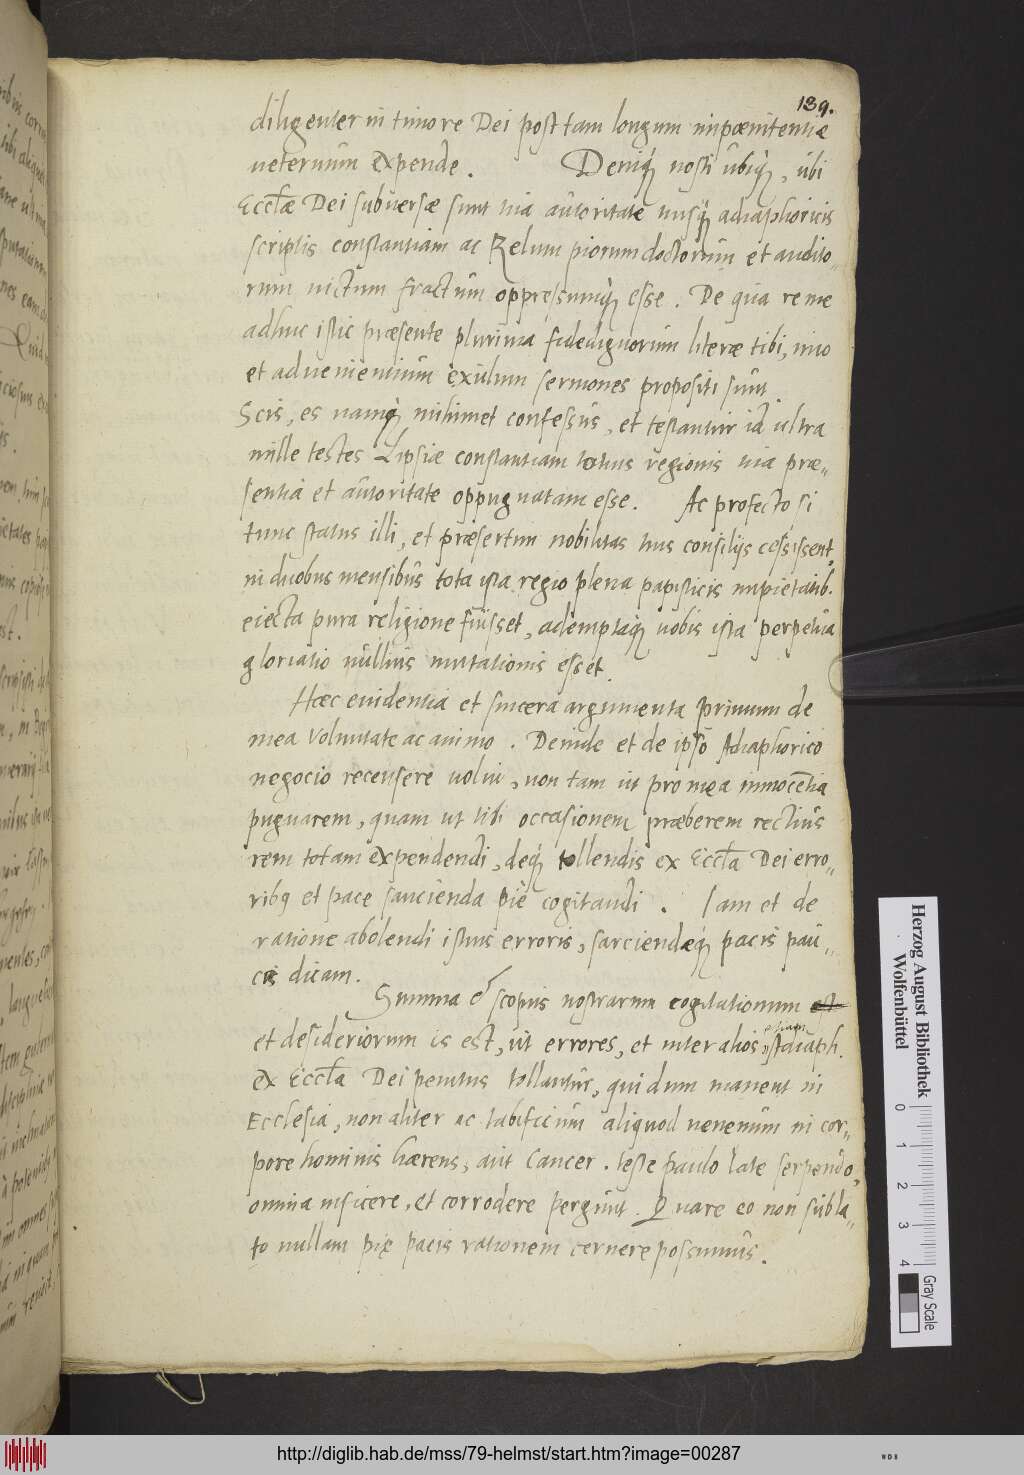 139.
diligenter in timore Dei post tam longum impœnitentiæ
ueternum expende. Deniq; nosti ubiq;, ubi
Eccłæ Dei subuersæ sunt tua autoritate tuisq; adiaphoricis
scriptis constantiam ac Zelum piorum doctorum et audito„
rum uictum fractum oppressumq; esse. De qua re me
adhuc istic præsente plurimæ fidedignorum literæ tibi, imo
et aduenientium exulum sermones propositi sunt.
Scis, es namq; mihimet confessus, et testantur id ultra
mille testes Lipsiæ constantiam totius regionis tua præ„
sentia et autoritate oppugnatam esse. Ac profecto si
tunc status illi, et præsertim nobilitas tuis consilijs cessissent,
in duobus mensibus tota ista regio plena papisticis impietatib.
eiecta pura religione fuisset, ademptaq; uobis ista perpetua
gloriatio nullius mutationis esset.
Hæc euidentia et sincera argumenta primum de
mea voluntate ac animo. Deinde et de ipso Adiaphorico
negocio recensere uolui, non tam ut pro mea innocētia
pugnarem, quam ut tibi occasionem præberem rectius
rem totam expendendi, deq; tollendis ex Eccła Dei erro„
ribq et pace sancienda piè cogitandi. Iam et de
ratione abolendi istius erroris, sarciendæq; pacis pau„
cis dicam.
Summa et scopus nostrarum cogitationum est
et desideriorum is est, ut errores, et inter alios etiam
istdiaph.
ex Eccła Dei penitus tollantur, qui dum manent in
Ecclesia, non aliter ac tabificum aliquod uenenum in cor„
pore hominis hærens, aut Cancer. teste paulo late serpendo,
omnia inficere, et corrodere pergunt. Quare eo non subla„
to nullam piæ pacis rationem cernere possumus.
Herzog August Bibliothek
Wolfenbüttel
0 1 2 3 4
Gray Scale
http://diglib.hab.de/mss/79-helmst/start.htm?image=00287